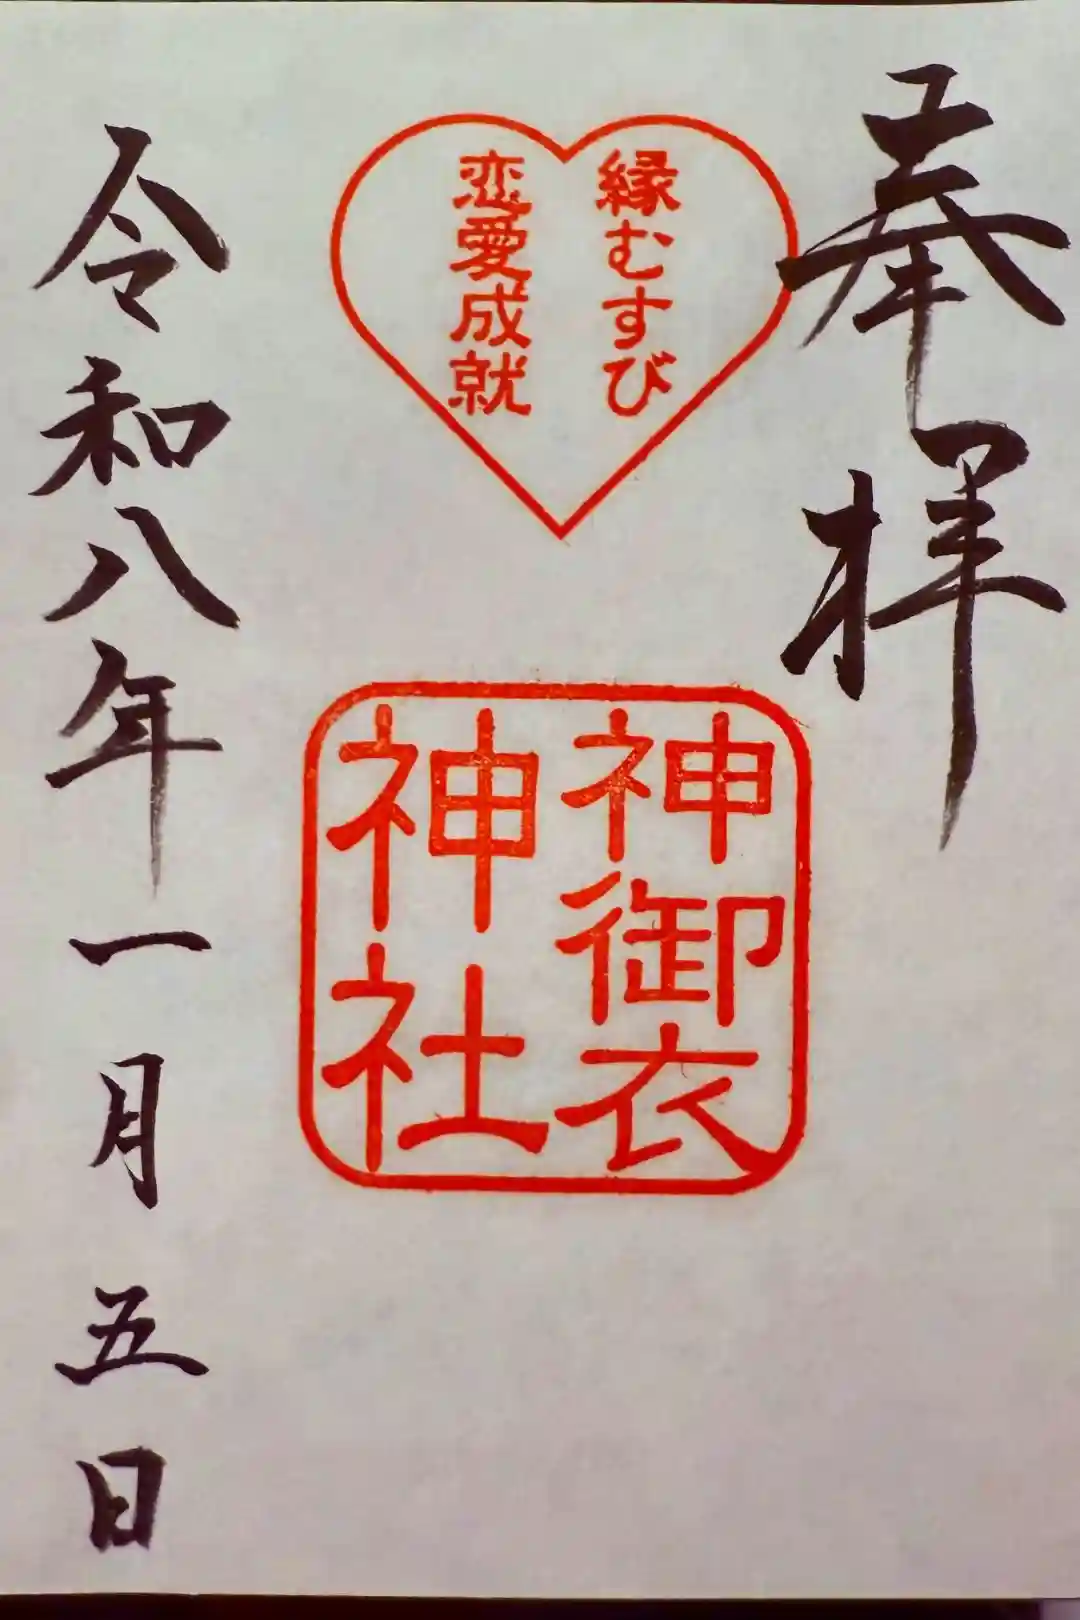 奉拝
縁むすび
恋愛成就
神御衣
神社
令和八年一月五日